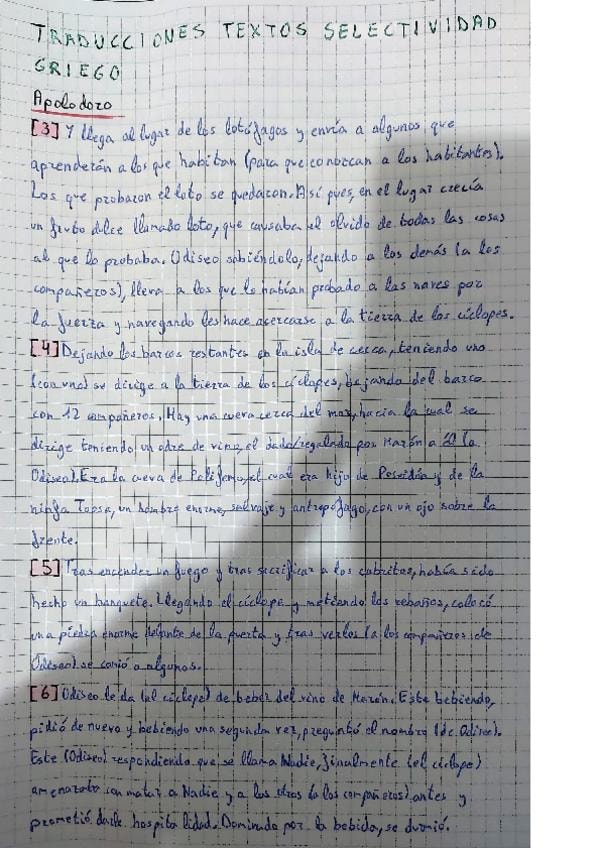 TRADUCCIONES TEXTOS SELECTIVIDAD
GRIEGO
Apolodoro
[3] Y llega al lugar de los lotófagos y envía a algunos que
aprenderán a los que habitan (para que conozcan a los habitantes).
Los que probaron el loto se quedaron. Así pues, en el lugar crecía
un fruto dulce llamado loto, que causaba el olvido de todas las cosas
al que lo probaba. Odiseo sabiéndolo, dejando a los demás (a los
compañeros), lleva a los que lo habían probado a las naves por
la fuerza y navegando les hace acercarse a la tierra de los cíclopes.
[4] Dejando los barcos restantes en la isla de cerca, teniendo uno
(con uno) se dirige a la tierra de los cíclopes, bajando del barco
con 12 compañeros. Hay una cueva cerca del mar, hacia la cual se
dirige teniendo un odre de vino, el dado/regalado por Marón a él (a
Odiseo). Era la cueva de Polifemo, el cual era hijo de Poseidón y de la
ninfa Toosa, un hombre enorme, salvaje y antropófago, con un ojo sobre la
frente.
[5] Tras encender un fuego y tras sacrificar a los cabritos, había sido
hecho un banquete. Llegando el cíclope y metiendo los rebaños, colocó
una piedra enorme delante de la puerta y tras verlos (a los compañeros de
Odiseo) se comió a algunos.
[6] Odiseo le da (al cíclope) de beber del vino de Marón. Este bebiendo,
pidió de nuevo y bebiendo una segunda vez, preguntó el nombre (de Odiseo).
Este (Odiseo) respondiendo que se llama Nadie, finalmente (el cíclope)
amenazaba con matar a Nadie y a los otros (a los compañeros) antes y
prometió darle hospitalidad. Dominado por la bebida, se durmió.